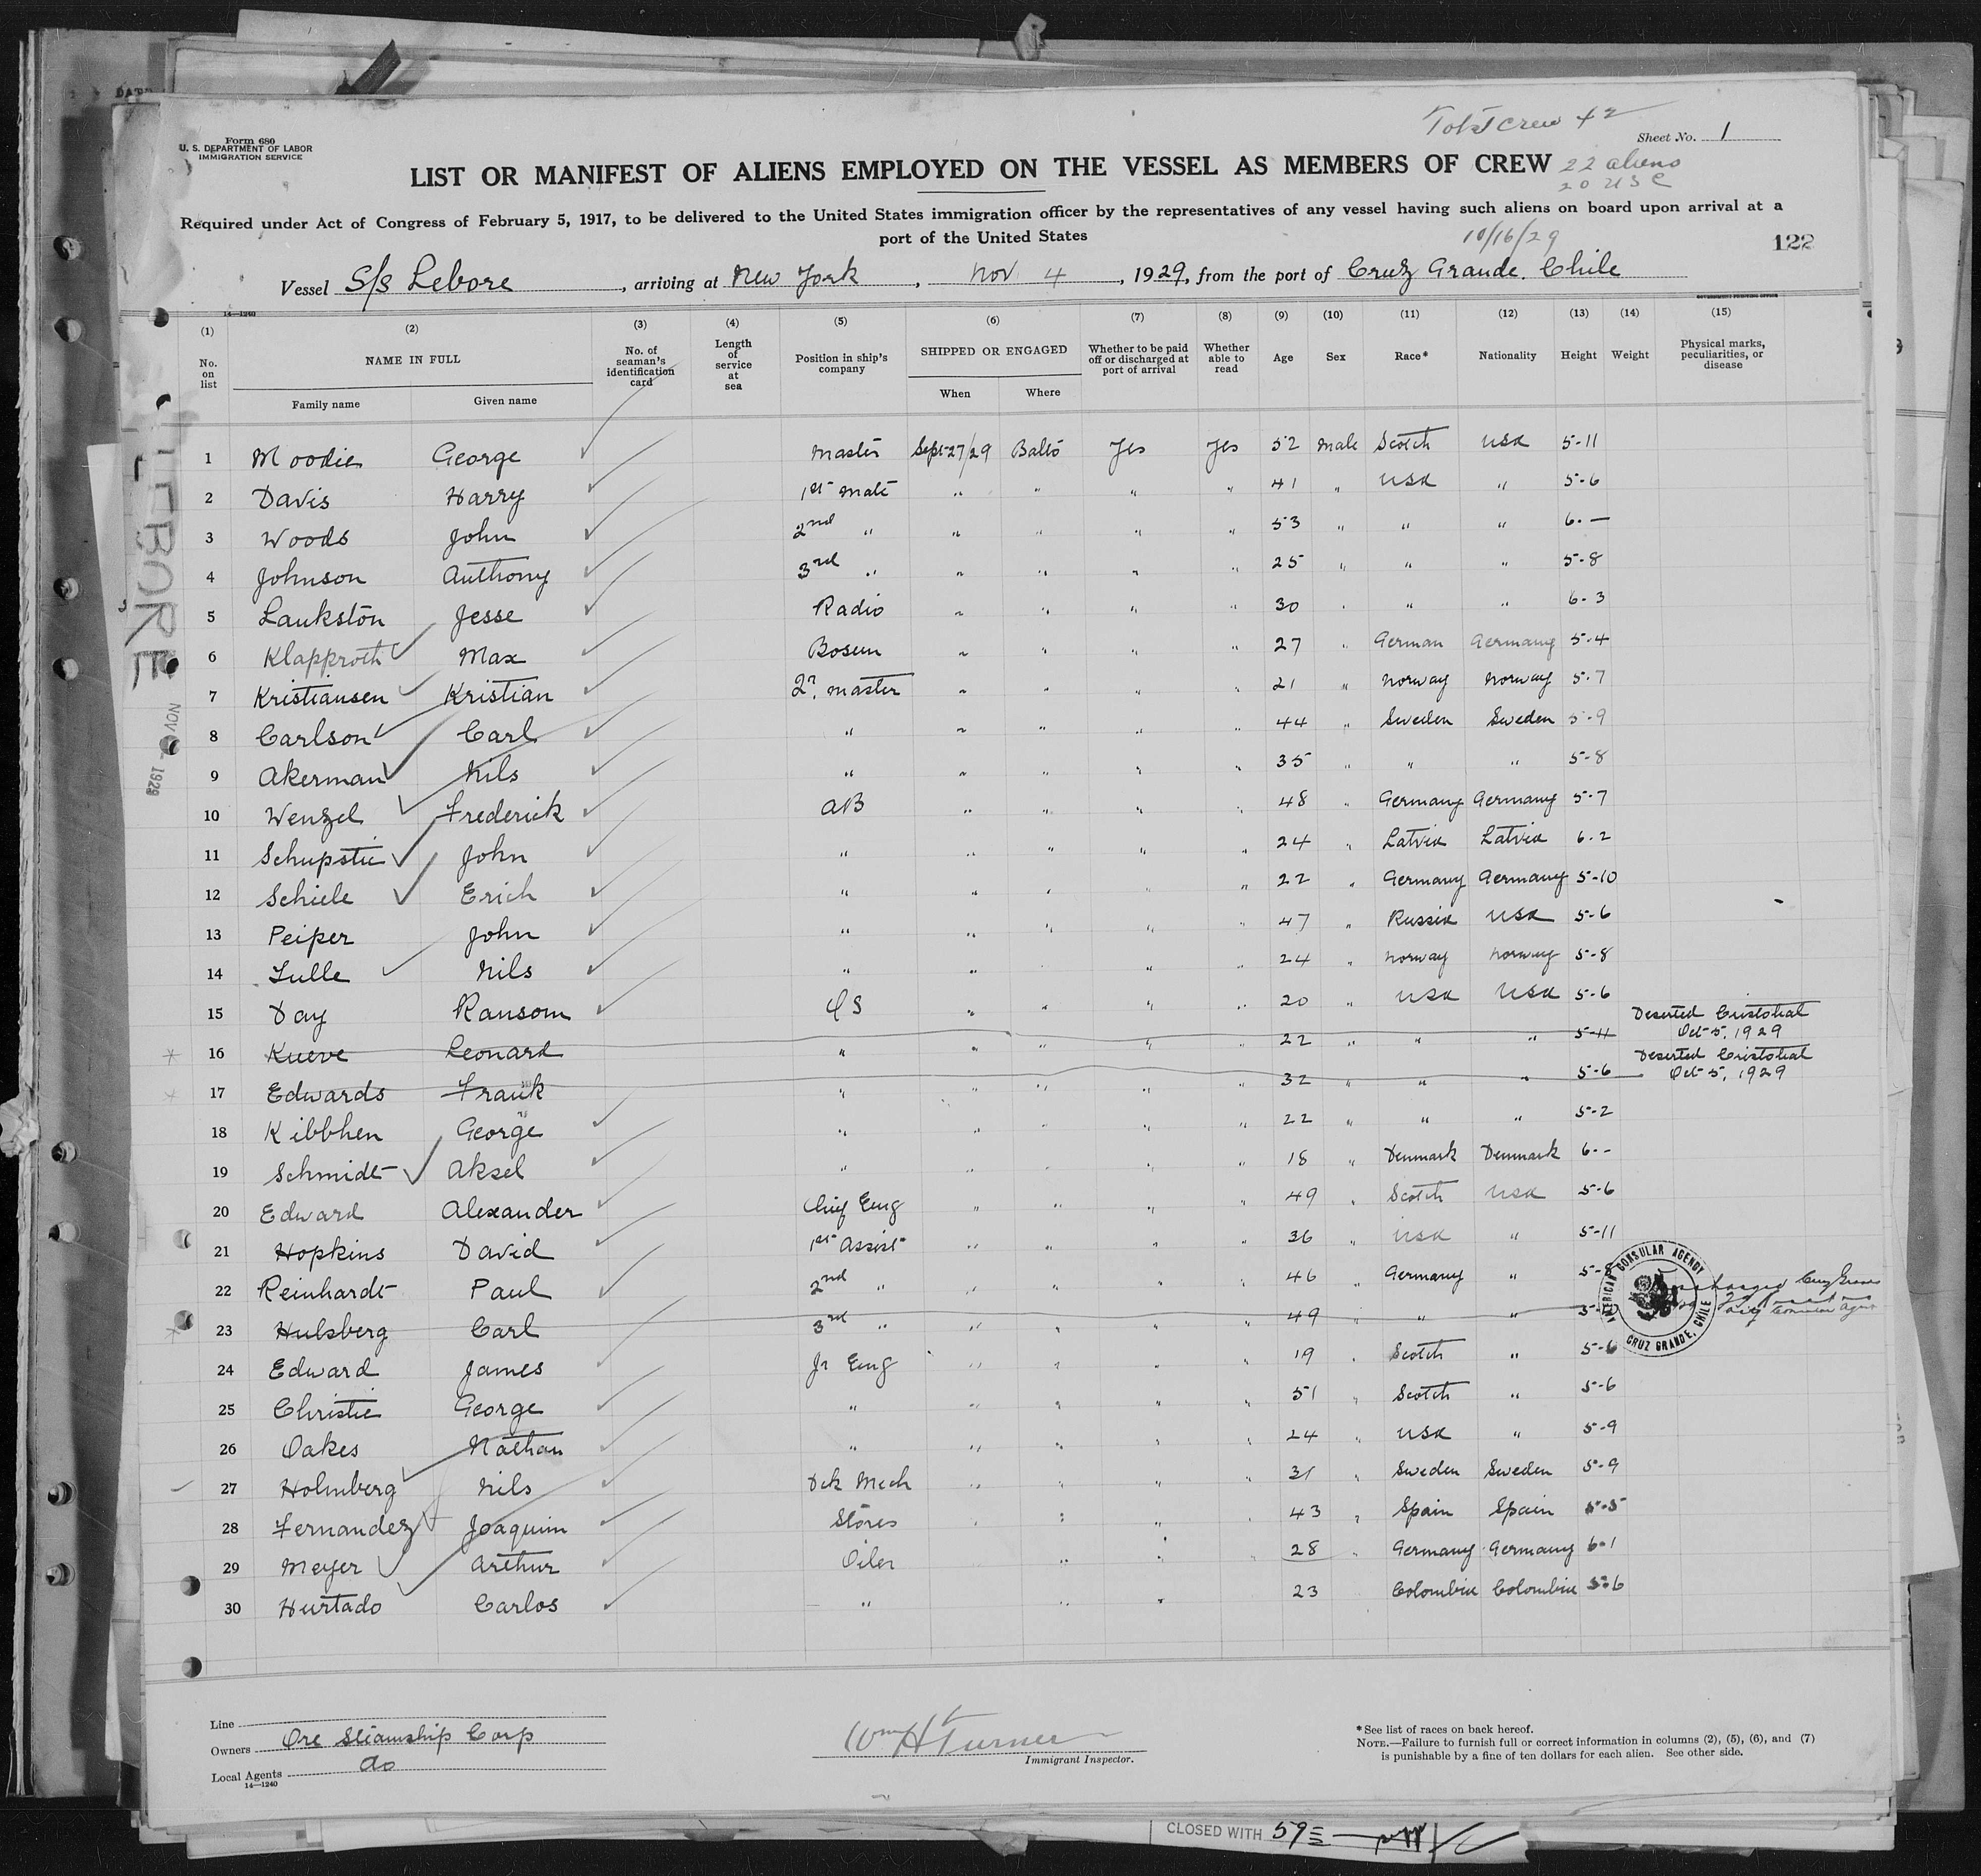 Total Crew 42
Form 680
U. S. DEPARTMENT OF LABOR
IMMIGRATION SERVICE
Sheet No. 1
LIST OR MANIFEST OF ALIENS EMPLOYED ON THE VESSEL AS MEMBERS OF CREW
22 aliens
20 USC
Required under Act of Congress of February 5, 1917, to be delivered to the United States immigration officer by the representatives of any vessel having such aliens on board upon arrival at a
port of the United States
10/16/29
122
Vessel S/s Lebore, arriving at New York, Nov 4, 1929, from the port of Cruz Grande. Chile
14—1240
GOVERNMENT PRINTING OFFICE
(1) (2) (3) (4) (5) (6) (7) (8) (9) (10) (11) (12) (13) (14) (15)
No. on list NAME IN FULL No. of seaman's identification card Length of service at sea Position in ship's company SHIPPED OR ENGAGED Whether to be paid off or discharged at port of arrival Whether able to read Age Sex Race* Nationality Height Weight Physical marks, peculiarities, or disease
Family name Given name When Where
1 Moodie George Master Sept 27/29 Balto Yes Yes 52 Male Scotch USA 5-11
2 Davis Harry 1st Mate " " " " 41 " USA " 5-6
3 Woods John 2nd " " " " " 53 " " " 6.—
4 Johnson Anthony 3rd " " " " " 25 " " " 5-8
5 Laukston Jesse Radio " " " " 30 " " " 6-3
6 Klapproth Max Bosun " " " " 27 " German Germany 5-4
7 Kristiansen Kristian Qr. master " " " " 21 " Norway Norway 5-7
8 Carlson Carl " " " " " 44 " Sweden Sweden 5-9
9 Akerman Nils " " " " " 35 " " " 5-8
10 Wenzel Frederick AB " " " " 48 " Germany Germany 5-7
11 Schupstic John " " " " " 24 " Latvia Latvia 6-2
12 Schiele Erich " " " " " 22 " Germany Germany 5-10
13 Peiper John " " " " " 47 " Russia USA 5-6
14 Lulle Nils " " " " " 24 " Norway Norway 5-8
15 Day Ransom OS " " " " 20 " USA USA 5-6
Deserted Cristobal
Oct 5, 1929
16 Kueve Leonard " " " " " 22 " " " 5-11
Deserted Cristobal
Oct 5, 1929
17 Edwards Frank " " " " " 32 " " " 5-6
18 Kibbhen George " " " " " 22 " " " 5-2
19 Schmidt Aksel " " " " " 18 " Denmark Denmark 6--
20 Edward Alexander Chief Eng " " " " 49 " Scotch USA 5-6
21 Hopkins David 1st Assist " " " " 36 " USA " 5-11
22 Reinhardt Paul 2nd " " " " " 46 " Germany " 5-8
AMERICAN CONSULAR AGENCY
CRUZ GRANDE, CHILE
23 Hulsberg Carl 3rd " " " " " 49 " " "
24 Edward James Jr Eng " " " " 19 " Scotch " 5-6
25 Christie George " " " " 51 " Scotch " 5-6
26 Oakes Nathan " " " " " 24 " USA " 5-9
27 Holmberg Nils Dck Mech " " " " 31 " Sweden Sweden 5-9
28 Fernandez Joaquim Stores " " " " 43 " Spain Spain 5-5
29 Meyer Arthur Oiler " " " 28 " Germany Germany 6-1
30 Hurtado Carlos " " " 23 Colombia Colombia 5-6
LEBORE
NOV 1929
Line
Owners Ore Steamship Corp
Local Agents do
14—1240
Wm H Turner
Immigrant Inspector.
*See list of races on back hereof.
NOTE.—Failure to furnish full or correct information in columns (2), (5), (6), and (7)
is punishable by a fine of ten dollars for each alien. See other side.
CLOSED WITH 59